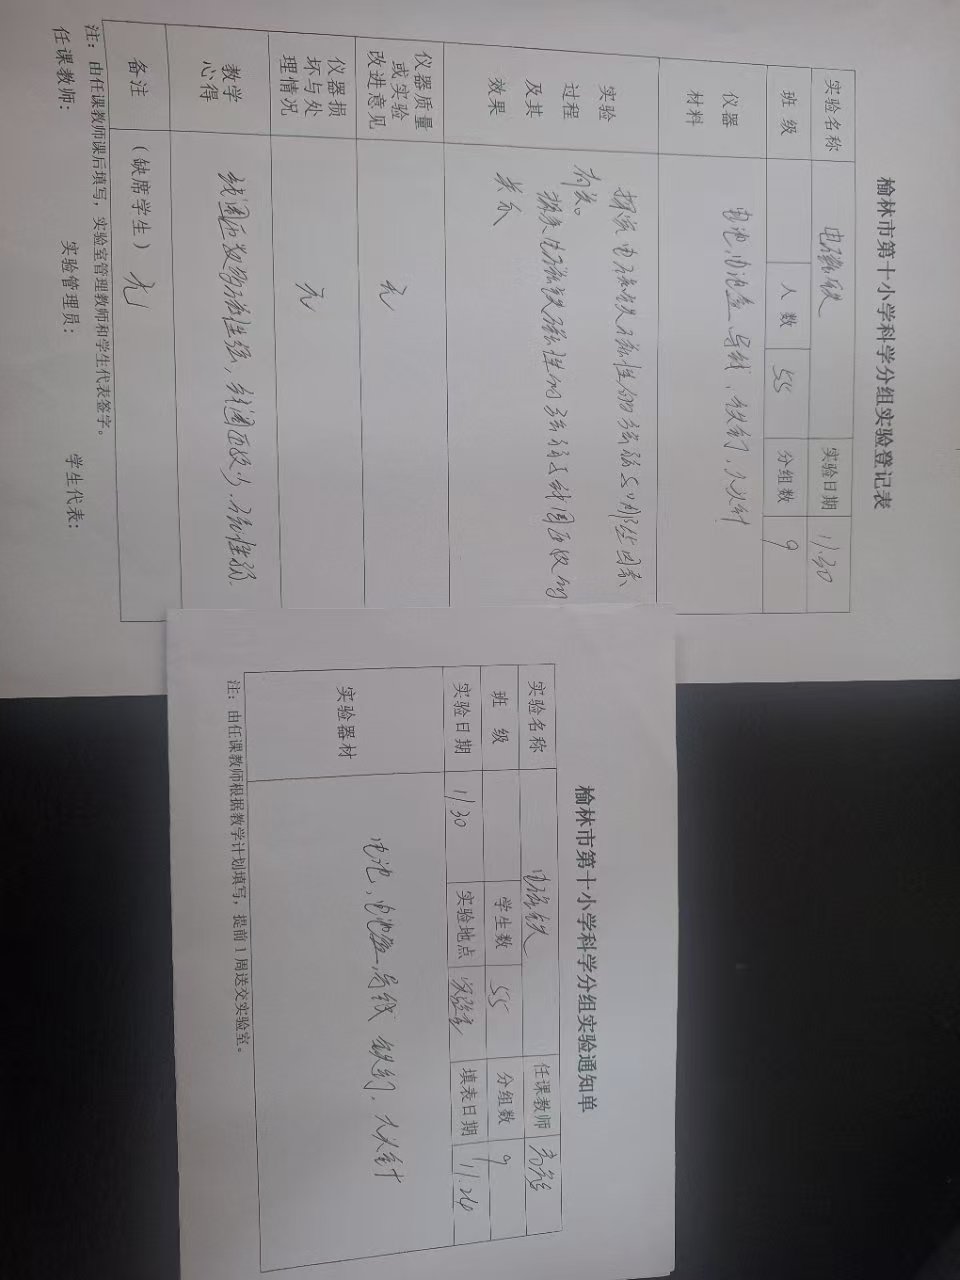 榆林市第十小学科学分组实验登记表
实验名称 电磁铁 实验日期 11.30
班 级 人 数 55 分组数 9
仪器
材料
电池、电池盒、导线、铁钉、大头针
实验
过程
及其
效果
探究电磁铁磁性的强弱与哪些因素
有关。
探究电磁铁磁性的强弱与线圈匝数的
关系
仪器质量
或实验
改进意见
无
仪器损
坏与处
理情况
无
教学
心得
线圈匝数多磁性强、线圈匝数少、磁性弱
备注 (缺席学生) 无
注:由任课教师课后填写,实验室管理教师和学生代表签字。
任课教师: 实验管理员: 学生代表:
榆林市第十小学科学分组实验通知单
实验名称 电磁铁 任课教师
班 级 学生数 55 分组数 9
实验日期 11/30 实验地点 实验室 填表日期 11.24
实验器材 电池、电池盒、导线 铁钉、大头针
注:由任课教师根据教学计划填写,提前1周送交实验室。